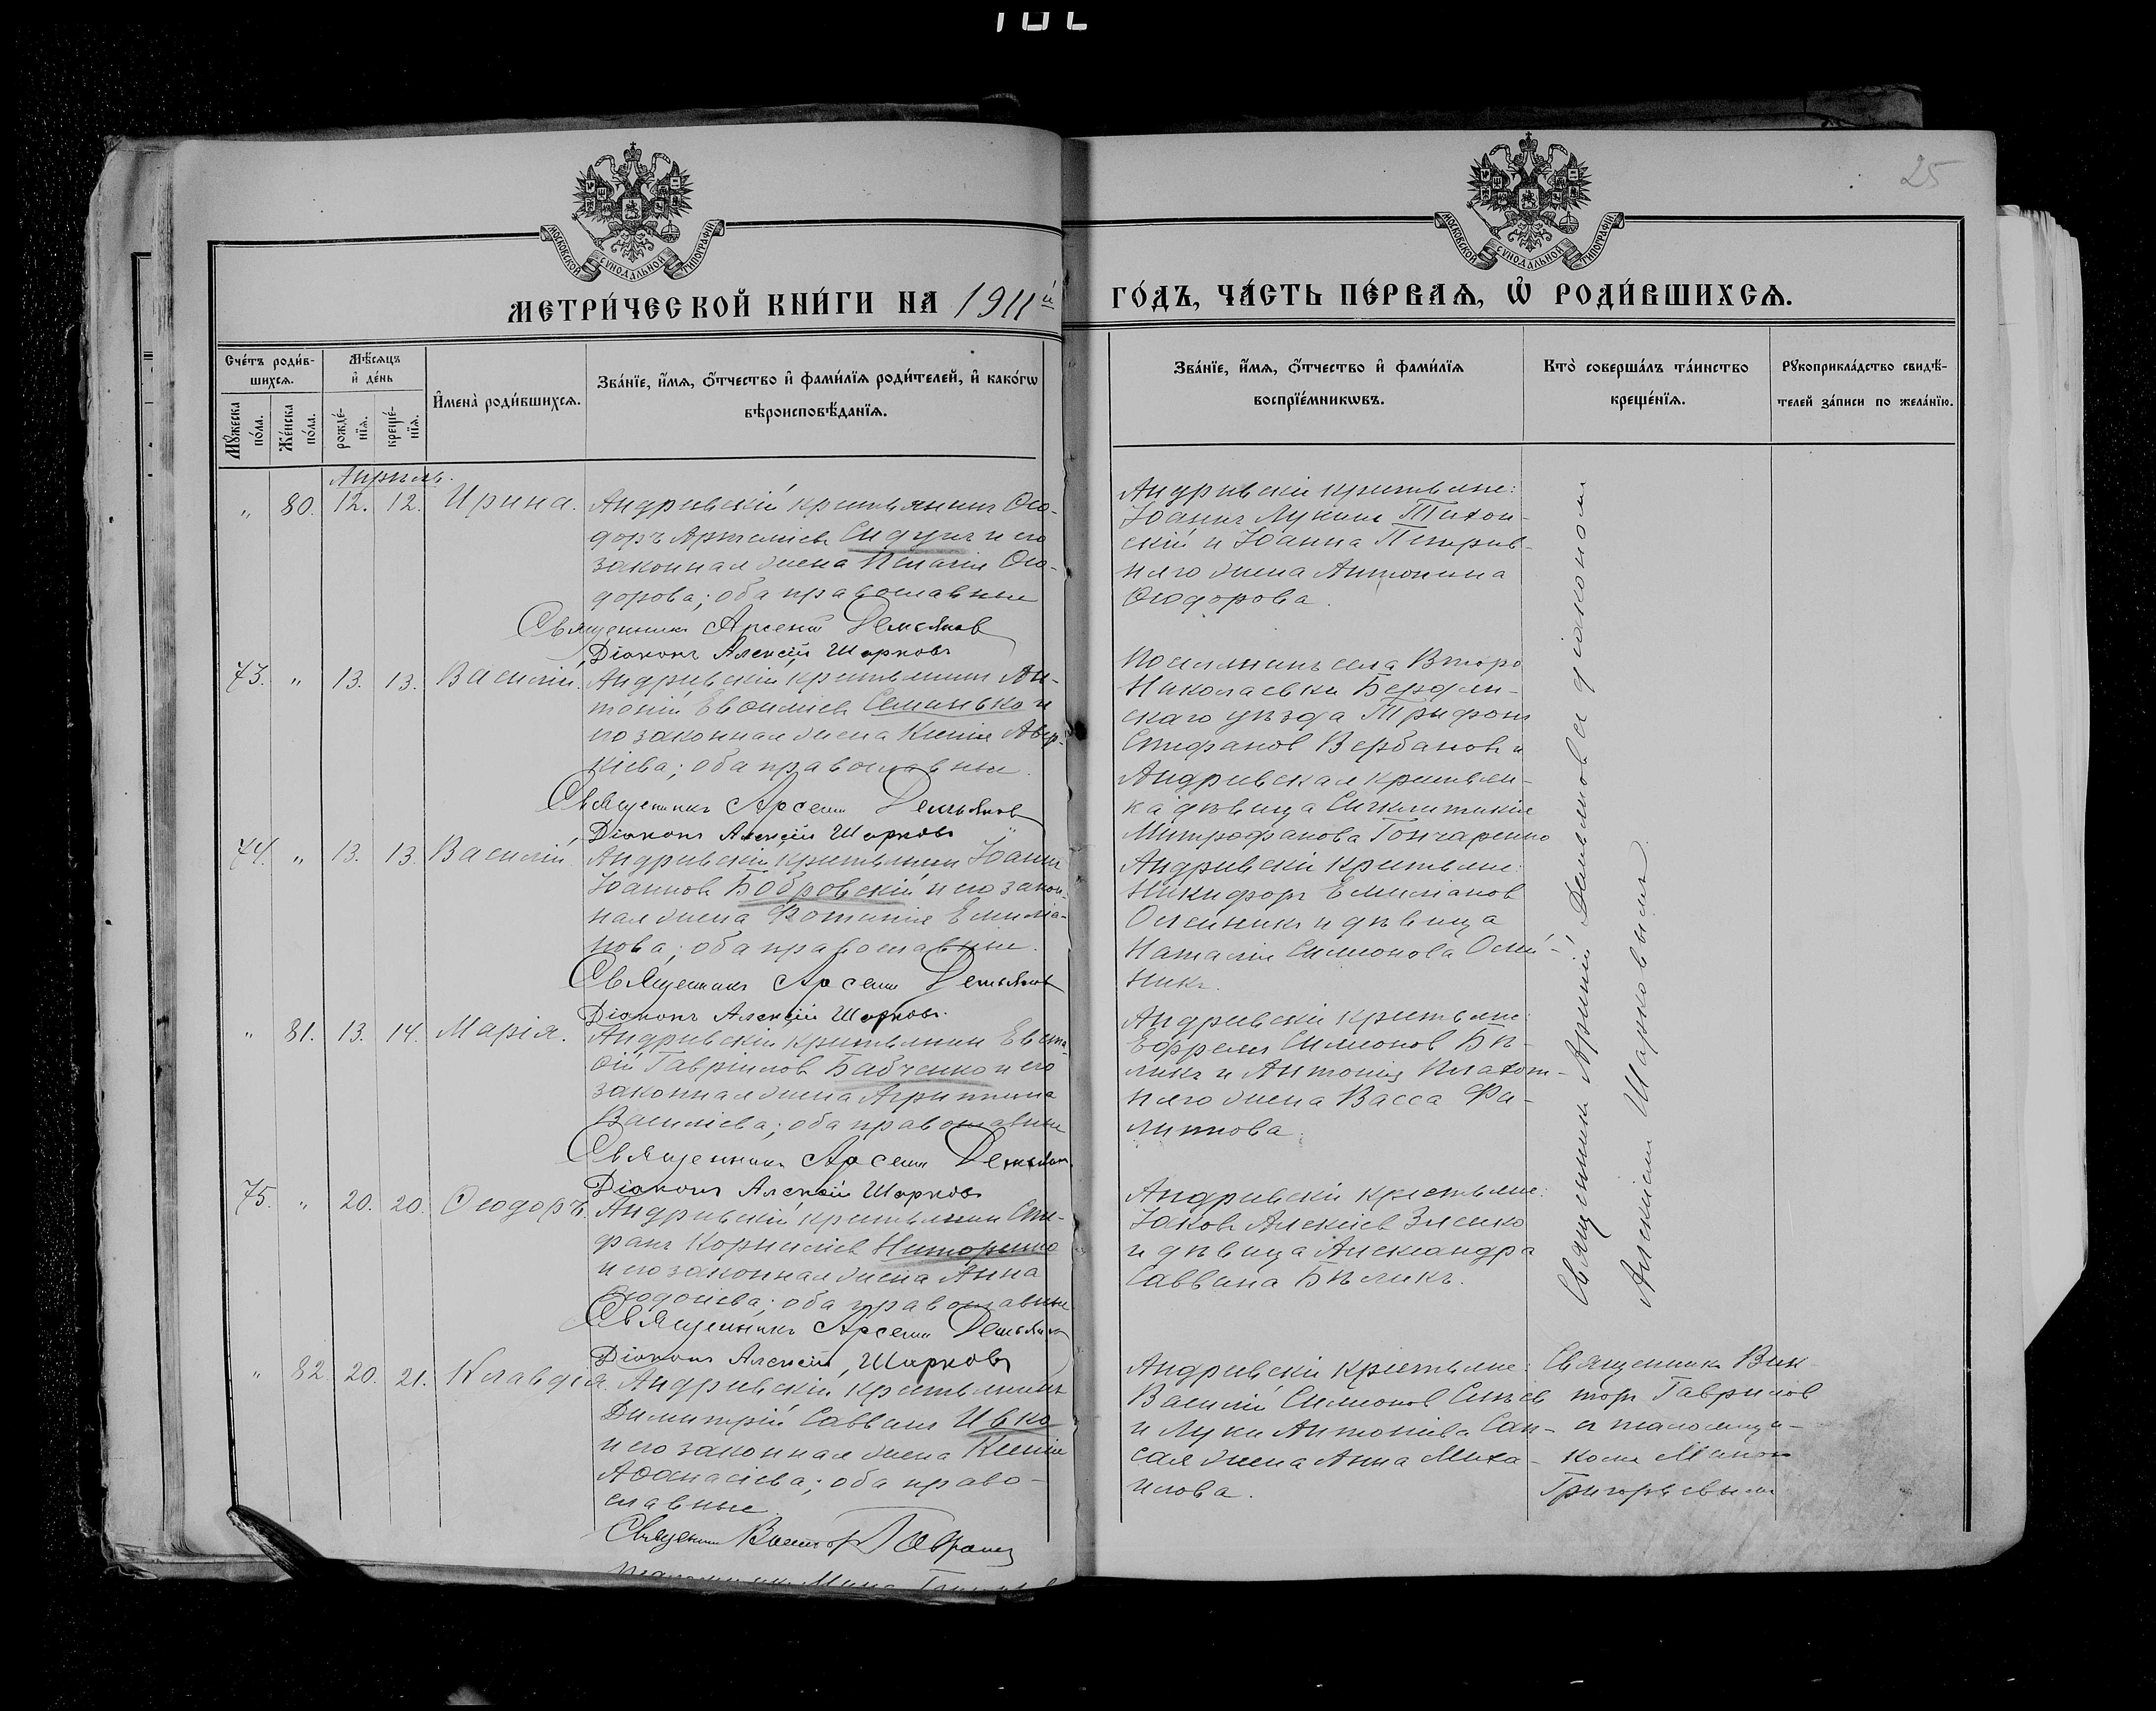 25
МОСКОВСКОЙ СѴНОДАЛЬНОЙ ТИПОГРАФІИ
МОСКОВСКОЙ СѴНОДАЛЬНОЙ ТИПОГРАФІИ
МЕТРИ́ЧЕСКОЙ КНИ́ГИ НА 1911й
ГО́ДЪ, ЧА́СТЬ ПЕ́РВАѦ, Ѽ РОДИ́ВШИХСѦ.
Счéтъ роди́в-
шихсѧ.
Мꙋ́жеска
по́ла.
Же́нска
по́ла.
Мѣ́сѧцъ
и҆ де́нь
рожде́-
нїѧ.
креще́-
нїѧ.
И҆мена̀ роди́вшихсѧ.
Зва́нїе, и҆́мѧ, ѻ҆́тчество и҆ фами́лїѧ роди́телей, и҆ како́гѡ
вѣроисповѣ́данїѧ.
Зва́нїе, и҆́мѧ, ѻ҆́тчество и҆ фами́лїѧ
воспрїе́мникѡвъ.
Кто̀ соверша́лъ та́инство
креще́нїѧ.
Рꙋкоприкла́дство свидѣ́-
телей за́писи по жела́нїю.
Апрѣль.
„ 80. 12. 12. Ирина.
Андреевскій крестьянинъ Ѳео-
доръ Артеміевъ и его
законная жена Ѳео-
дорова; оба православные
Священникъ Арсеній Демьянов
Діаконъ Алексій Шарковъ
Андреевскіе крестьяне:
Іоаннъ Лукинъ Тихон-
скій и Іоанна
няго жена Антонина
Ѳеодорова.
73. „ 13. 13. Василій.
Андреевскій крестьянинъ Ан-
тоній Семинько и
его законная жена Ксенія Авер-
кіева; оба православные.
Священникъ Арсеній Демьянов
Діаконъ Алексій Шарковъ
Поселянинъ села Второ
Николаевки Бердян-
скаго уѣзда Трифонъ
Стефановъ Вербановъ и
Андреевская крестьян-
ка дѣвица Синклитикія
Митрофанова Гончаренко
74. „ 13. 13. Василій.
Андреевскій крестьянинъ Іоаннъ
Іоанновъ Бобровскій и его закон-
ная жена Фотинія Емилiа-
нова; оба православные.
Священникъ Арсеній Демьянов
Діаконъ Алексій Шарковъ.
Андреевскіе крестьяне:
Никифоръ Емиліановъ
Олейникъ и дѣвица
Наталія Симонова Олей-
никъ.
„ 81. 13. 14. Марія.
Андреевскій крестьянинъ
Гавріиловъ Бабченко и его
законная жена Агриппина
Василіева; оба православные
Священникъ Арсеній Демьянов
Діаконъ Алексій Шарковъ
Андреевскіе крестьяне:
Ефремъ Симоновъ Бѣ-
ликъ и Антонія
няго жена Васса Фи-
липпова.
75. „ 20. 20. Ѳеодоръ.
Андреевскій крестьянинъ Сте-
фанъ Корниліевъ
и его законная жена Анна
Ѳеодосіева; оба православные
Священникъ Арсеній Демьянов
Діаконъ Алексій Шарковъ
Андреевскіе крестьяне:
Іаковъ Алексіевъ Зленко
и дѣвица Александра
Саввина Бѣликъ.
Священникъ Арсеній Демьяновъ съ діакономъ
Алексіемъ Шарковымъ.
„ 82. 20. 21. Клавдія.
Андреевскій крестьянинъ
Димитрій Саввинъ Ивко
и его законная жена Ксенія
Аѳанасіева; оба право-
славные
Священникъ Викторъ Гавриловъ
Андреевскіе крестьяне:
Василій Симоновъ
и Луки Антоніева Сан-
сая жена Анна Миха-
илова.
Священникъ Вик-
торъ Гавриловъ
и псаломщи-
комъ Миною
Григорьевымъ